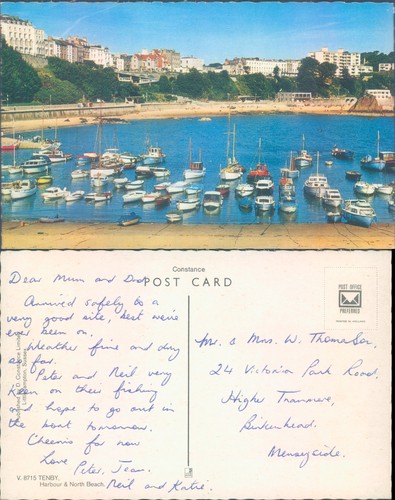 Constance
POST CARD
POST OFFICE
PREFERRED
Dear Mum and Dad
Arrived safely to a
very good site, best we've
ever been on.
Weather fine and dry
so far.
Peter and Neil very
keen on their fishing
and hope to go out in
the boat tomorrow.
Cheerio for now
Love Peter, Jean.
Neil and Katie.
Mr. & Mrs. W. Thomason,
24 Victoria Park Road,
Higher Tranmere,
Birkenhead.
Merseyside.
V. 8715 TENBY,
Harbour & North Beach.
Littlehampton, Sussex